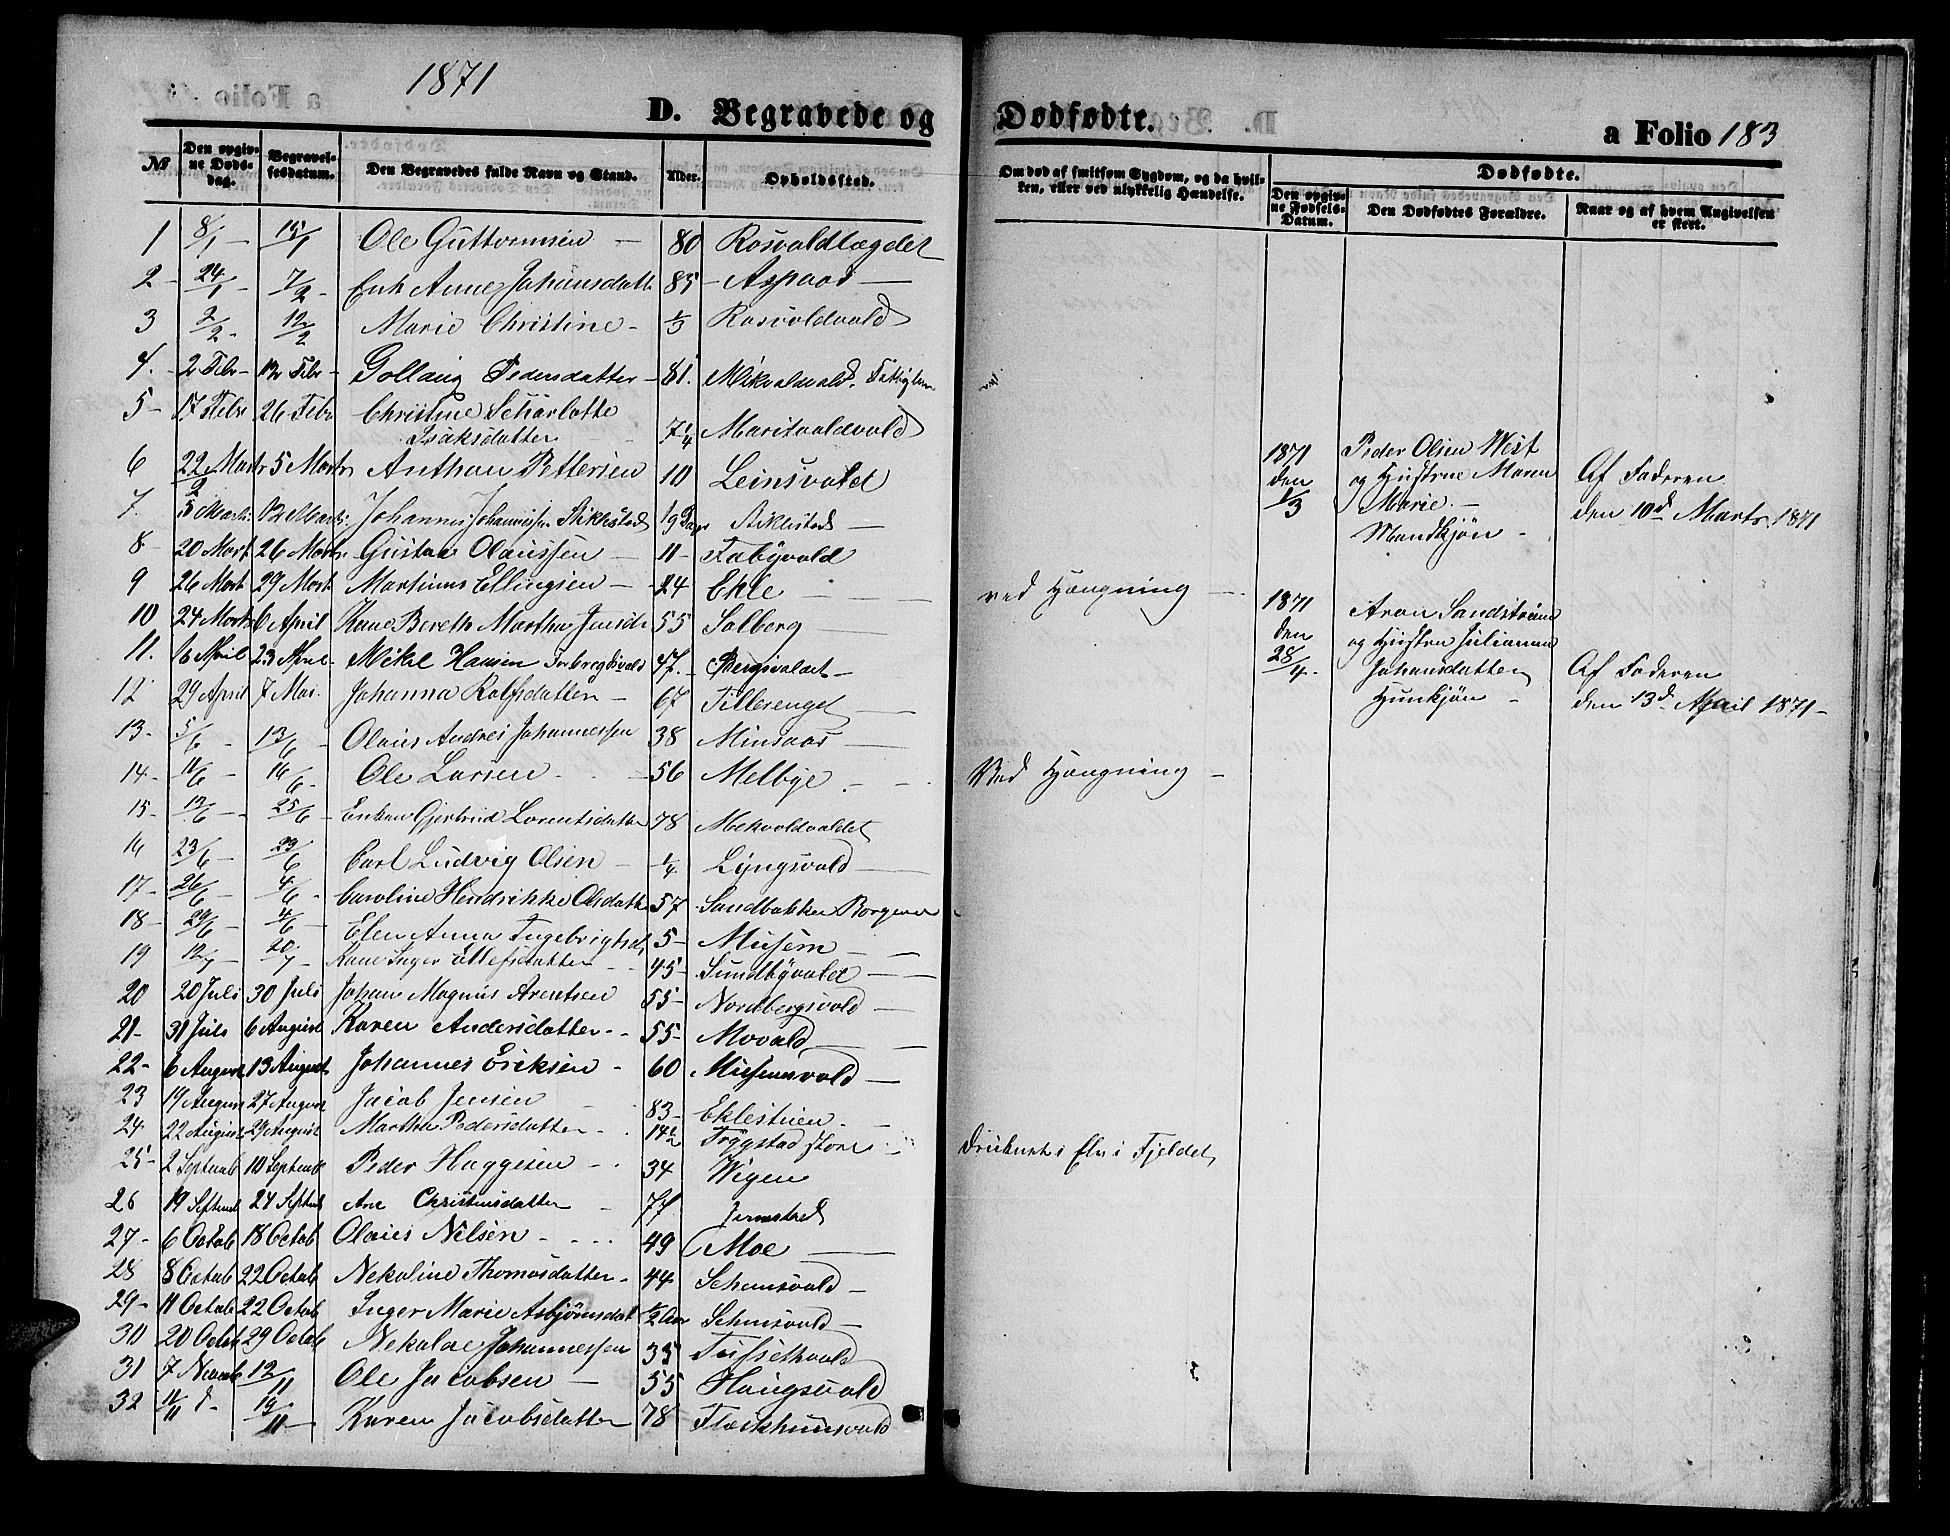 1871
D. Begravede og Dødfødte. a Folio 183
№ Den opgivne Døds-dag. Begravelsesdatum. Den Begravedes fulde Navn og Stand. Alder. Opholdssted. Om død af smitsom Sygdom, og da hvilken, eller ved ulykkelig Hændelse. Dødfødte.
Den opgivne Fødsels-Datum. Den Dødfødtes Forældre. Naar og af hvem Angivelsen er skeet.
1 8/1 15/1 Ole Guttormsen 80 Rosvoldlægdet
2 24/1 7/2 Enk Anne Johansdatt 85 Aspaas
3 2/2 12/2 Marie Christine 1/3 Rosvoldvald
4. 2 Febr 12 Febr Gollaug Pedersdatter 81. Mikvoldvald.
5 17 Febr 26 Febr Christine Scharlotte
Isaksdatter 7 1/4 Maritvoldvald
6 22 Marts 5 Marts Anthon Pettersen 10 Leinsvald
2
7. 5 Marts 12 Marts Johannes Johannessen Stiklestad 19 Dage Stiklestad
8 20 Mart 26 Marts Gustav Olaussen 11 Fabyvald
9 26 Mart 29 Mart Martinus Ellingsen 24 Ekle ved Hængning
10 24 Marts 6 April Kane Bereth Martha Jensd 55 Solberg
11. 16 April 23 April Mikel Hansen 47. Bergsvalet
12 29 April 7 Mai Johanna Rolfsdatter 67 Tillerenget
13 5/6 13/6 Olaus Andreas Johannessen 38 Minsaas
14 11/6 16/6 Ole Larsen 56 Melbye Ved Hængning
15 13/6 25/6 Enken Gjertrud Lorentsdatter 78 Mekvoldvaldet
16 23/6 29/6 Carl Ludvig Olsen 1/4 Lyngsvald
17 26/6 4/6 Caroline Hendrikke Olsdatter 57 Sandbakken Borgen
18 29/6 4/6 Elen Anna Ingebrigtsd 5 Musem
19 12/7 20/7 Kane Inger Ollefsdatter 45 Sundbyvalet
20 20 Juli 30 Juli Johan Magnus Arentsen 55 Nordbergsvald
21 31 Juli 6 August Karen Andersdatter 55 Movald
22 6 August 13 August Johannes Eriksen 60 Musemsvald
23 19 August 27 August Jacob Jensen 83 Eklestuen
24 22 August 29 August Martha Pedersdatter 14 1/2 Trygstad store
25 2 Septemb 10 Septemb Peder Haggesen 34 Wigen Druknet i Elv i Fjeldet
26 19 Septemb 24 Septemb Ane Christensdatter 77 Jermstad
27 6 Octob 18 Octob Olaus Nilsen 49 Moe
28 8 Octob 22 Octob Nekoline Thomasdatter 44 Schensvald
29 11 Octob 22 Octob Inger Marie Asbjørnsdat 1/2 Aar Schensvald
30 20 Octob 29 Octob Nekolai Johannessen 35 Tussethvald
31 7 Novemb 12/11 Ole Jacobsen 55 Haugsvald
32 11/11 19/11 Karen Jacobsdatter 78 Fleskhusvald
1871
den
1/3
Peder Olsen West
og Hustrue Maren
Marie
Mandkjøn
Af Faderen
den 10d Marts 1871
1871
den
28/4
Aron Sandstrøm
og Hustru Julianna
Johansdatter
Hunkjøn
Af Faderen
den 13d April 1871